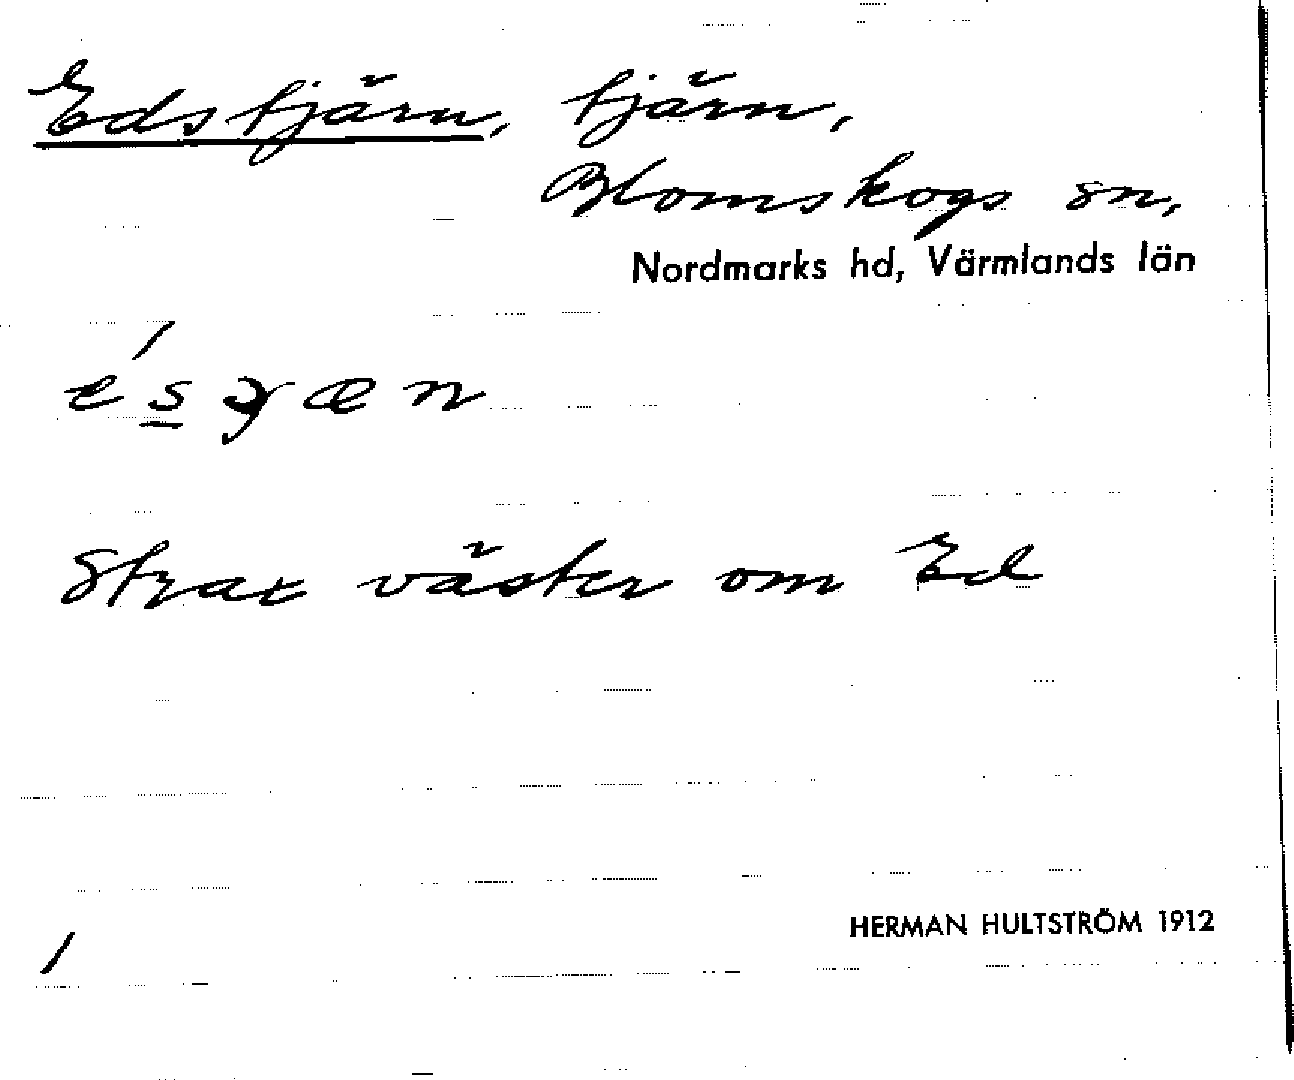 Edstjärn, tjärn,
Blomskogs sn,
Nordmarks hd, Värmlands län
Strax väster om Ed
HERMAN HULTSTRÖM 1912
/